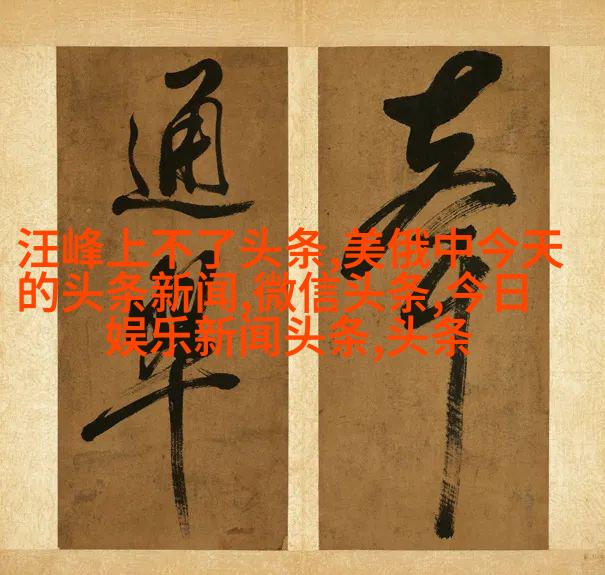 汪峰上不了头条,美俄中今天
的头条新闻,微信头条,今日
娱乐新闻头条,头条
通